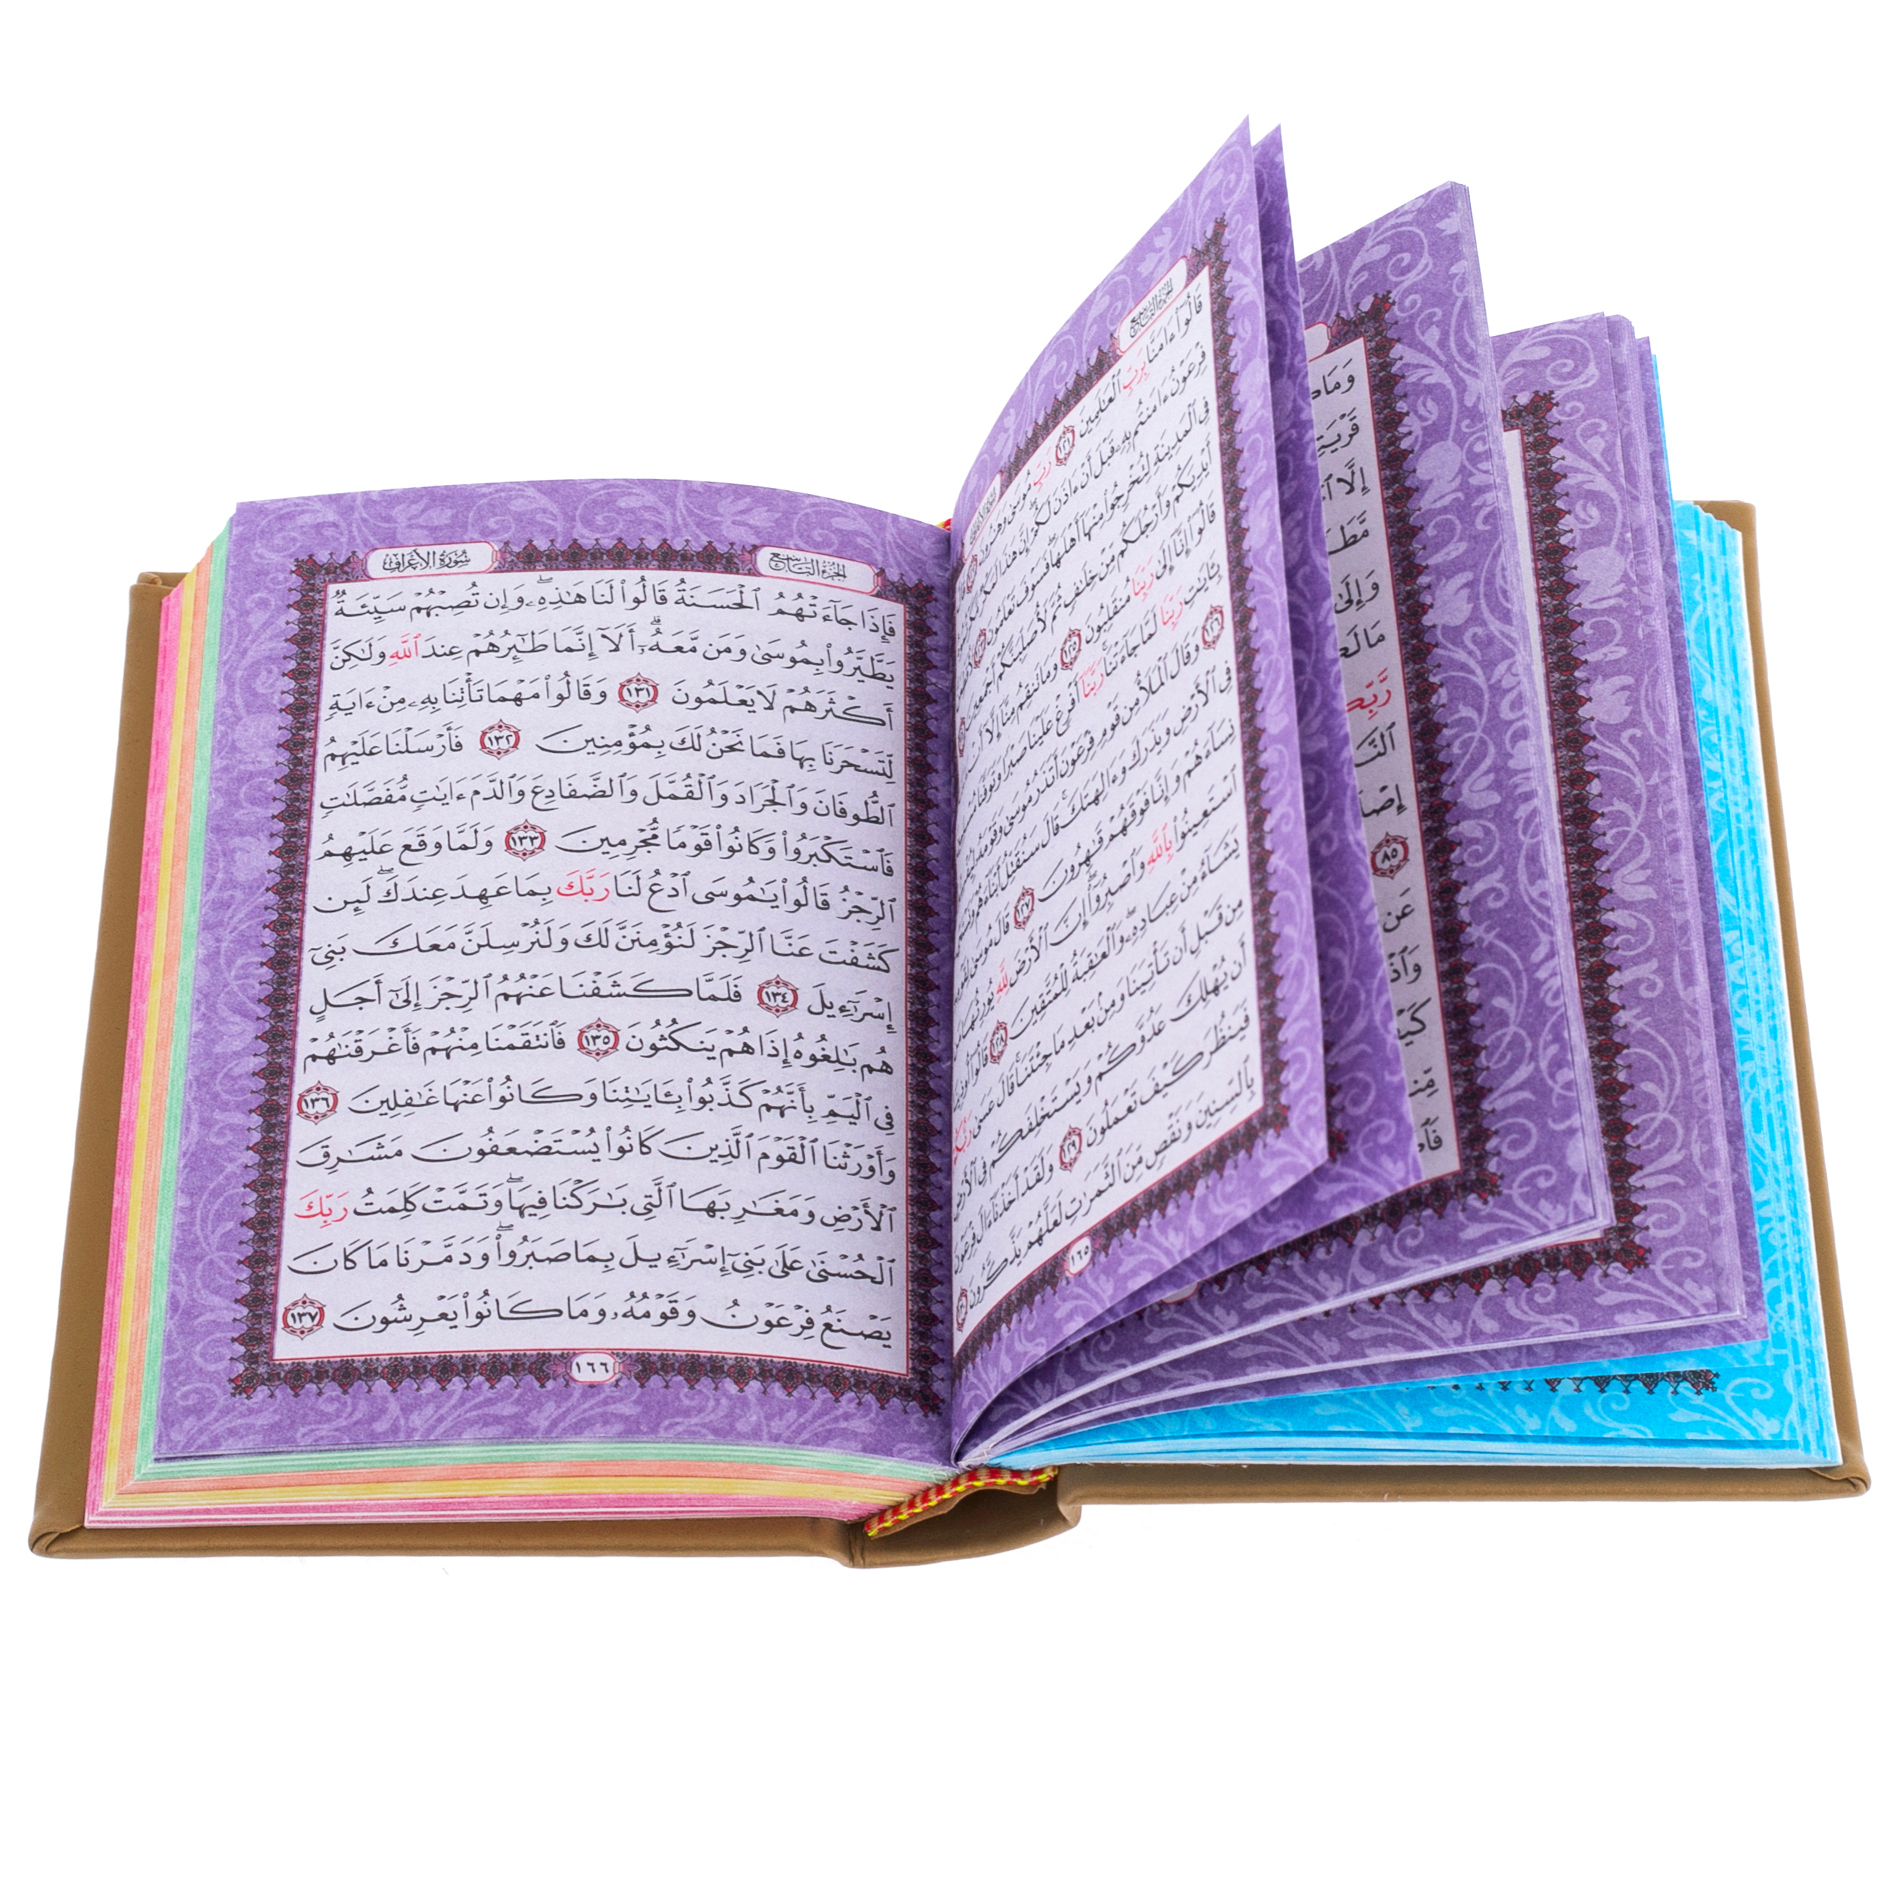 الجزء التاسع
قَالُوٓاْ ءَامَنَّا بِرَبِّ ٱلْعَٰلَمِينَ ١٢١ رَبِّ مُوسَىٰ وَهَٰرُونَ
فِرْعَوْنُ ءَامَنتُم بِهِۦ قَبْلَ أَنْ ءَاذَنَ لَكُمْ إِنَّ هَٰذَا لَمَكْرٌ
فِي ٱلْمَدِينَةِ لِتُخْرِجُواْ مِنْهَآ أَهْلَهَا فَسَوْفَ تَعْلَمُونَ
أَيْدِيَكُمْ وَأَرْجُلَكُم مِّنْ خِلَٰفٍ ثُمَّ لَأُصَلِّبَنَّكُمْ أَجْمَعِينَ
قَالُوٓاْ إِنَّآ إِلَىٰ رَبِّنَا مُنقَلِبُونَ ١٢٥ وَمَا تَنقِمُ مِنَّآ إِلَّآ أَنْ
بِـَٔايَٰتِ رَبِّنَا لَمَّا جَآءَتْنَا رَبَّنَآ أَفْرِغْ عَلَيْنَا صَبْرًا وَتَوَفَّنَا
١٢٦ وَقَالَ ٱلْمَلَأُ مِن قَوْمِ فِرْعَوْنَ أَتَذَرُ مُوسَىٰ وَقَوْمَهُۥ
فِي ٱلْأَرْضِ وَيَذَرَكَ وَءَالِهَتَكَ قَالَ سَنُقَتِّلُ أَبْنَآءَهُمْ
نِسَآءَهُمْ وَإِنَّا فَوْقَهُمْ قَٰهِرُونَ ١٢٧ قَالَ مُوسَىٰ لِقَوْمِهِ
ٱسْتَعِينُواْ بِٱللَّهِ وَٱصْبِرُوٓاْ إِنَّ ٱلْأَرْضَ لِلَّهِ يُورِثُهَا مَن
يَشَآءُ مِنْ عِبَادِهِۦ وَٱلْعَٰقِبَةُ لِلْمُتَّقِينَ ١٢٨ قَالُوٓاْ أُوذِينَا
مِن قَبْلِ أَن تَأْتِيَنَا وَمِنۢ بَعْدِ مَا جِئْتَنَا قَالَ عَسَىٰ رَبُّكُمْ
أَن يُهْلِكَ عَدُوَّكُمْ وَيَسْتَخْلِفَكُمْ فِي ٱلْأَرْضِ
فَيَنظُرَ كَيْفَ تَعْمَلُونَ ١٢٩ وَلَقَدْ أَخَذْنَآ ءَالَ فِرْعَوْنَ
بِٱلسِّنِينَ وَنَقْصٍ مِّنَ ٱلثَّمَرَٰتِ لَعَلَّهُمْ يَذَّكَّرُونَ
١٦٥
سُورَةُ الأَعْرَافِ الجزء التاسع
فَإِذَا جَآءَتْهُمُ ٱلْحَسَنَةُ قَالُواْ لَنَا هَٰذِهِۦ وَإِن تُصِبْهُمْ سَيِّئَةٌ
يَطَّيَّرُواْ بِمُوسَىٰ وَمَن مَّعَهُۥٓ أَلَآ إِنَّمَا طَٰٓئِرُهُمْ عِندَ ٱللَّهِ وَلَٰكِنَّ
أَكْثَرَهُمْ لَا يَعْلَمُونَ ١٣١ وَقَالُواْ مَهْمَا تَأْتِنَا بِهِۦ مِنْ ءَايَةٍ
لِّتَسْحَرَنَا بِهَا فَمَا نَحْنُ لَكَ بِمُؤْمِنِينَ ١٣٢ فَأَرْسَلْنَا عَلَيْهِمُ
ٱلطُّوفَانَ وَٱلْجَرَادَ وَٱلْقُمَّلَ وَٱلضَّفَادِعَ وَٱلدَّمَ ءَايَٰتٍ مُّفَصَّلَٰتٍ
فَٱسْتَكْبَرُواْ وَكَانُواْ قَوْمًا مُّجْرِمِينَ ١٣٣ وَلَمَّا وَقَعَ عَلَيْهِمُ
ٱلرِّجْزُ قَالُواْ يَٰمُوسَى ٱدْعُ لَنَا رَبَّكَ بِمَا عَهِدَ عِندَكَ لَئِن
كَشَفْتَ عَنَّا ٱلرِّجْزَ لَنُؤْمِنَنَّ لَكَ وَلَنُرْسِلَنَّ مَعَكَ بَنِيٓ
إِسْرَٰٓءِيلَ ١٣٤ فَلَمَّا كَشَفْنَا عَنْهُمُ ٱلرِّجْزَ إِلَىٰٓ أَجَلٍ
هُم بَٰلِغُوهُ إِذَا هُمْ يَنكُثُونَ ١٣٥ فَٱنتَقَمْنَا مِنْهُمْ فَأَغْرَقْنَٰهُمْ
فِي ٱلْيَمِّ بِأَنَّهُمْ كَذَّبُواْ بِـَٔايَٰتِنَا وَكَانُواْ عَنْهَا غَٰفِلِينَ ١٣٦
وَأَوْرَثْنَا ٱلْقَوْمَ ٱلَّذِينَ كَانُواْ يُسْتَضْعَفُونَ مَشَٰرِقَ
ٱلْأَرْضِ وَمَغَٰرِبَهَا ٱلَّتِي بَٰرَكْنَا فِيهَا وَتَمَّتْ كَلِمَتُ رَبِّكَ
ٱلْحُسْنَىٰ عَلَىٰ بَنِيٓ إِسْرَٰٓءِيلَ بِمَا صَبَرُواْ وَدَمَّرْنَا مَا كَانَ
يَصْنَعُ فِرْعَوْنُ وَقَوْمُهُۥ وَمَا كَانُواْ يَعْرِشُونَ ١٣٧
١٦٦